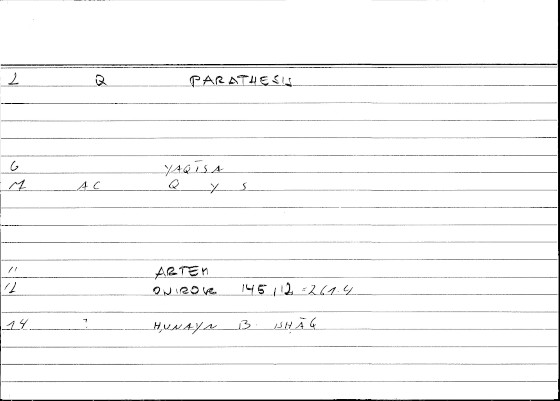 2 Q PARATHESIS
6 YAQĪSA
M AC Q Y S
11 ARTEM
12 ONIROKR 145,12 = 261.4
14 ? ḤUNAYN B. ISḤĀQ